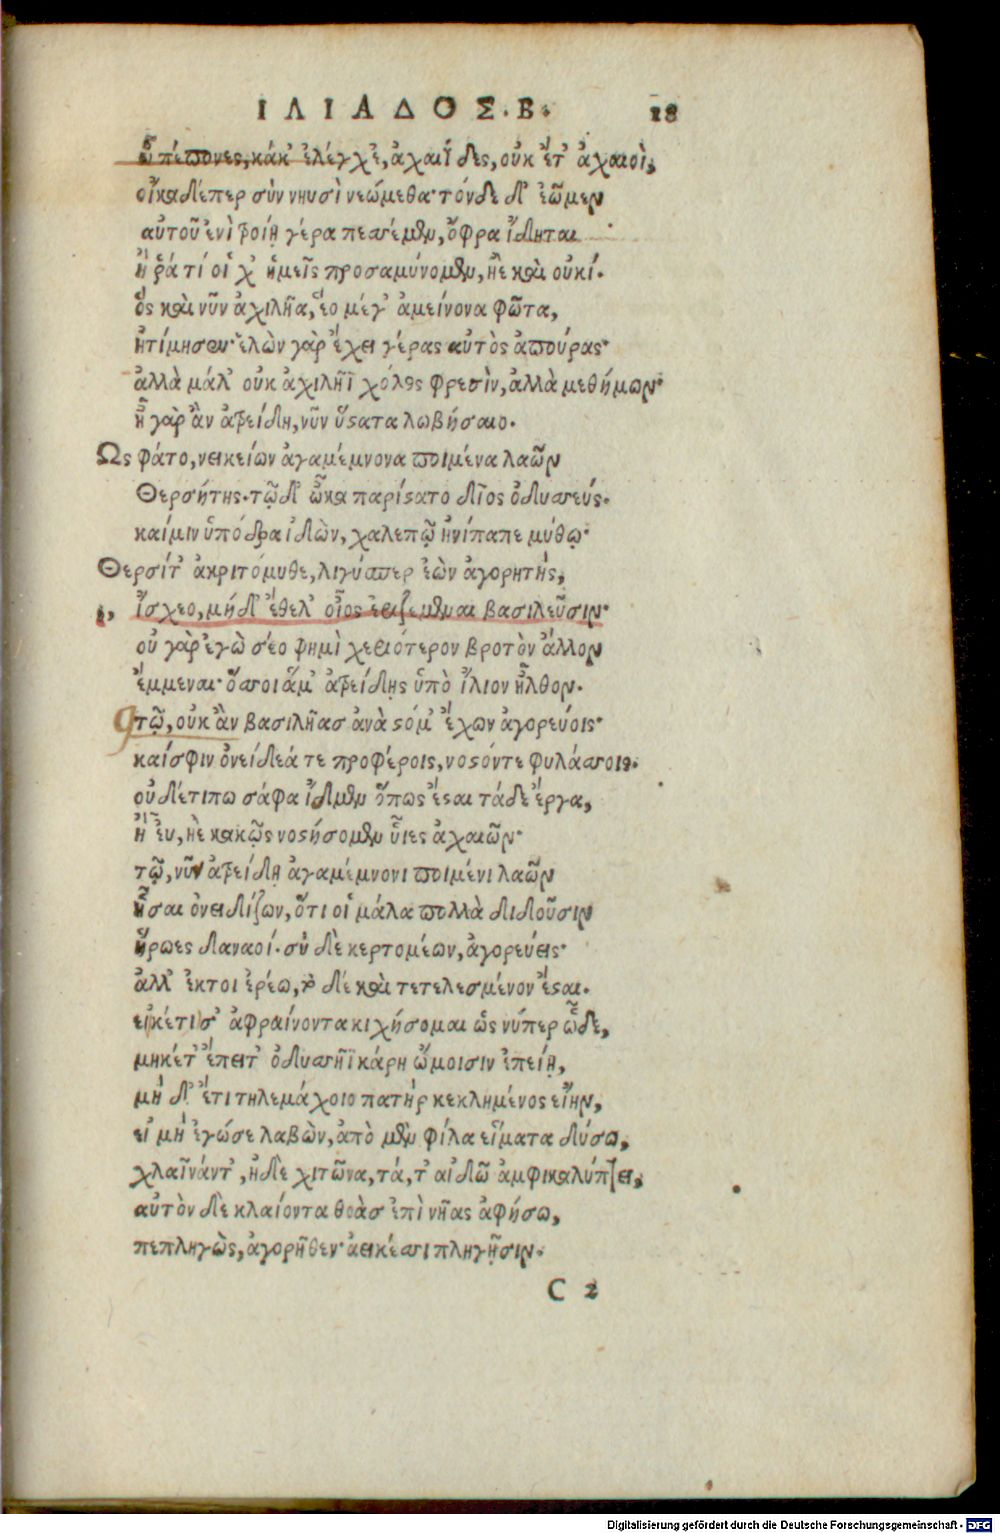 ΙΛΙΑΔΟΣ.Β. 18
ὦ πέπονες, κάκ' ἐλέγχε', ἀχαιΐδες, οὐκ ἔτ' ἀχαιοὶ,
οἴκαδέπερ σὺν νηυσὶ νεώμεθα· τόνδε δ' ἐῶμεν
αὐτοῦ ἐνὶ τροίῃ γέρα πεσσέμεν, ὄφρα ἴδηται
ἤ ῥά τί οἱ χ' ἡμεῖς προσαμύνομεν, ἠὲ καὶ οὐκί.
ὅς καὶ νῦν ἀχιλῆα, ἕο μέγ' ἀμείνονα φῶτα,
ἠτίμησεν· ἑλὼν γὰρ ἔχει γέρας αὐτὸς ἀπούρας·
ἀλλὰ μάλ' οὐκ ἀχιλῆϊ χόλος φρεσὶν, ἀλλὰ μεθήμων·
ἦ γὰρ ἂν ἀτρείδη, νῦν ὕστατα λωβήσαιο.
Ὣς φάτο, νεικείων ἀγαμέμνονα ποιμένα λαῶν
Θερσήτης. τῷ δ' ὦκα παρίστατο δῖος ὀδυσσεύς.
καίμιν ὑπόδρα ἰδὼν, χαλεπῷ ἠνίπαπε μύθῳ·
Θερσίτ' ἀκριτόμυθε, λιγύσπερ ἐὼν ἀγορητής,
ἴσχεο, μήδ' ἔθελ' οἶος ἐριζέμεναι βασιλεῦσιν·
οὐ γὰρ ἐγὼ σέο φημὶ χερειότερον βροτὸν ἄλλον
ἔμμεναι· ὅσσοι ἅμ' ἀτρείδῃς ὑπὸ ἴλιον ἦλθον.
τῷ, οὐκ ἂν βασιλῆας ἀνὰ στόμ' ἔχων ἀγορεύοις·
καίσφιν ὀνείδεά τε προφέροις, νοστόντε φυλάσσοις.
οὐδέτιπω σάφα ἴδμεν ὅπως ἔσται τάδε ἔργα,
ἢ ἐυ, ἠὲ κακῶς νοστήσομεν ὗιες ἀχαιῶν·
τῷ, νῦν ἀτρείδῃ ἀγαμέμνονι ποιμένι λαῶν
ἧσαι ὀνειδίζων, ὅτι οἱ μάλα πολλὰ διδοῦσιν
ἥρωες δαναοί. σὺ δὲ κερτομέων, ἀγορεύεις·
ἀλλ' ἔκτοι ἐρέω, τὸ δέ καὶ τετελεσμένον ἔσται.
εἰκέτι σ' ἀφραίνοντα κιχήσομαι ὥς νύπερ ὧδε,
μηκέτ' ἔπειτ' ὀδυσσῆϊ κάρη ὤμοισιν ἐπείη,
μὴ δ' ἔτι τηλεμάχοιο πατὴρ κεκλημένος εἴην,
εἰ μὴ ἐγώσε λαβὼν, ἀπὸ μὲν φίλα εἵματα δύσω,
χλαῖνάντ', ἠδὲ χιτῶνα, τά, τ' αἰδῶ ἀμφικαλύπτει,
αὐτὸν δὲ κλαίοντα θοὰσ ἐπὶ νῆας ἀφήσω,
πεπληγὼς, ἀγορῆθεν· ἀεικέσσι πληγῇσιν.
C 2
Digitalisierung gefördert durch die Deutsche Forschungsgemeinschaft - DFG